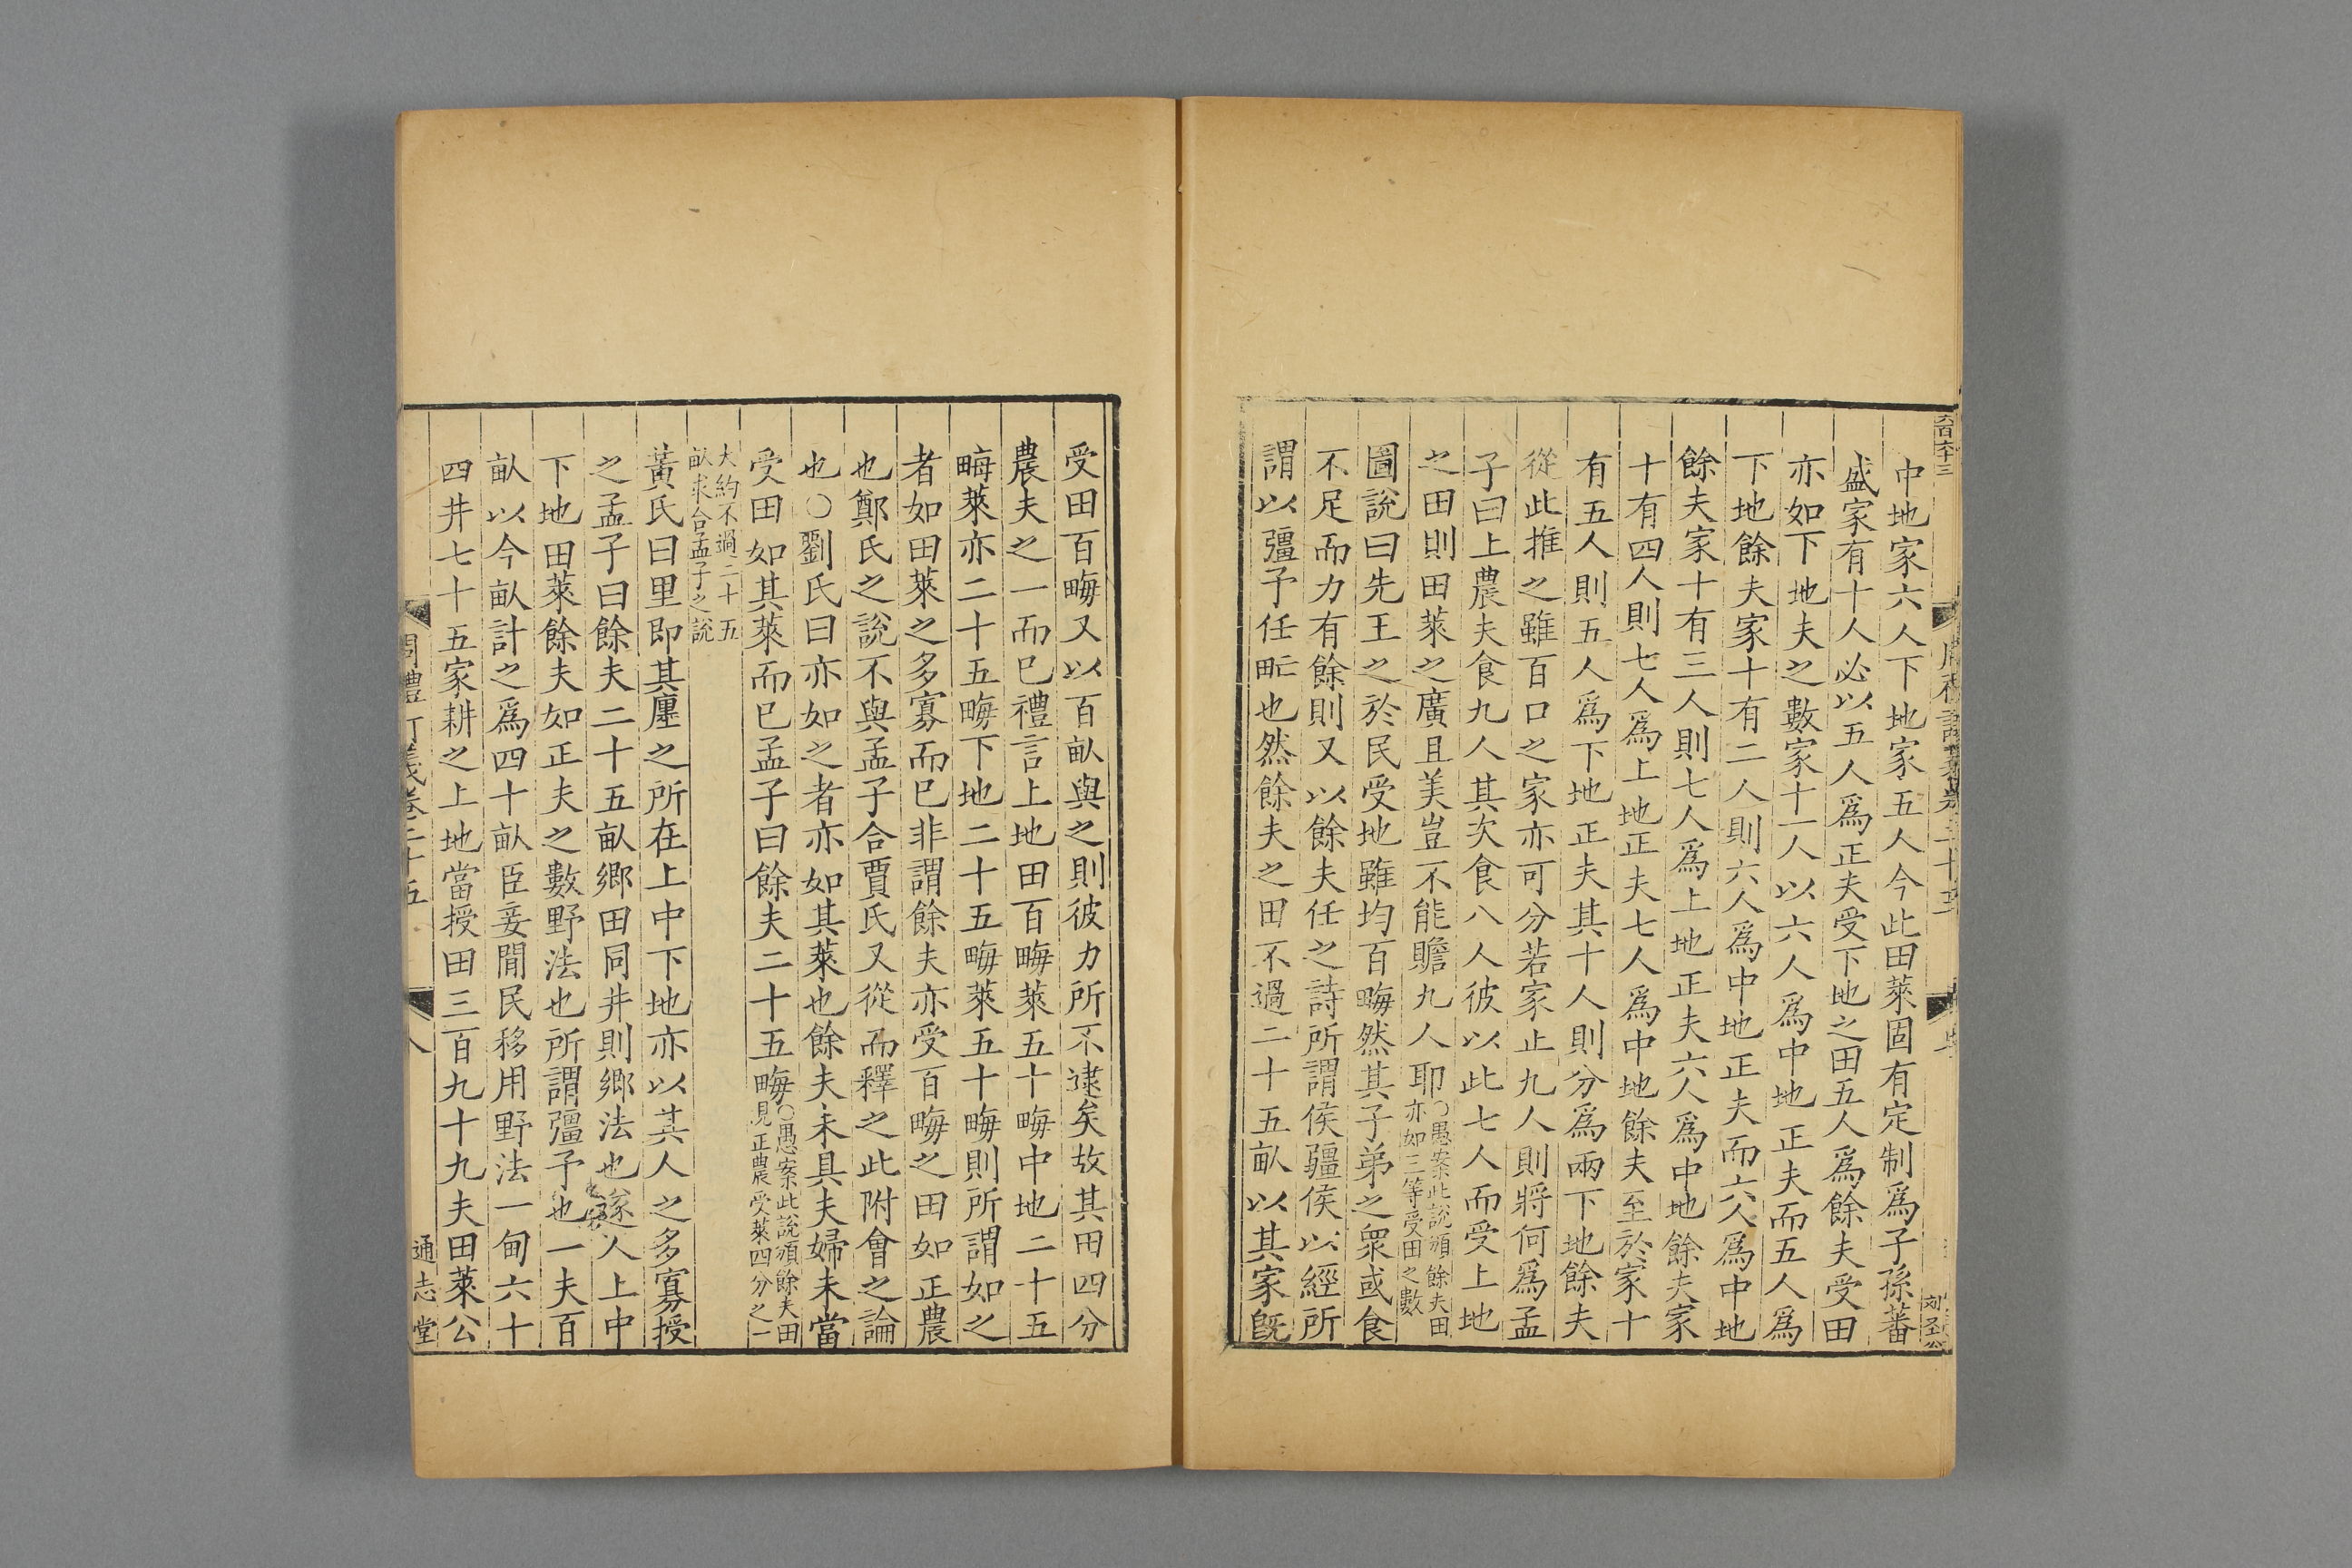 六百六十三
中地家六人下地家五人今此田萊固有定制爲子孫蕃
盛家有十人必以五人爲正夫受下地之田五人爲餘夫受田
亦如下地夫之數家十一人以六人爲中地正夫而五人爲
下地餘夫家十有二人則六人爲中地正夫而六人爲中地
餘夫家十有三人則七人爲上地正夫六人爲中地餘夫家
十有四人則七人爲上地正夫七人爲中地餘夫至於家十
有五人則五人爲下地正夫其十人則分爲兩下地餘夫
從此推之雖百口之家亦可分若家止九人則將何爲孟
子曰上農夫食九人其次食八人彼以此七人而受上地
之田則田萊之廣且美豈不能贍九人耶○愚案此說頒餘夫田
亦如三等受田之數
圖說曰先王之於民受地雖均百畮然其子弟之衆或食
不足而力有餘則又以餘夫任之詩所謂侯彊侯以經所
謂以彊予任甿也然餘夫之田不過二十五畝以其家旣
受田百畮又以百畝與之則彼力所不逮矣故其田四分
農夫之一而已禮言上地田百畮萊五十畮中地二十五
畮萊亦二十五畮下地二十五畮萊五十畮則所謂如之
者如田萊之多寡而已非謂餘夫亦受百畮之田如正農
也鄭氏之說不與孟子合賈氏又從而釋之此附會之論
也○劉氏曰亦如之者亦如其萊也餘夫未具夫婦未當
受田如其萊而已孟子曰餘夫二十五畮○愚案此說頒餘夫田
見正農受萊四分之一
大約不過二十五
畝求合孟子之說
黃氏曰里即其廛之所在上中下地亦以其人之多寡授
之孟子曰餘夫二十五畝鄉田同井則鄉法也遂人上中
下地田萊餘夫如正夫之數野法也所謂彊予也一夫百
畝以今畝計之爲四十畝臣妾閒民移用野法一甸六十
四井七十五家耕之上地當授田三百九十九夫田萊公
周禮訂義卷三十五
八
通志堂